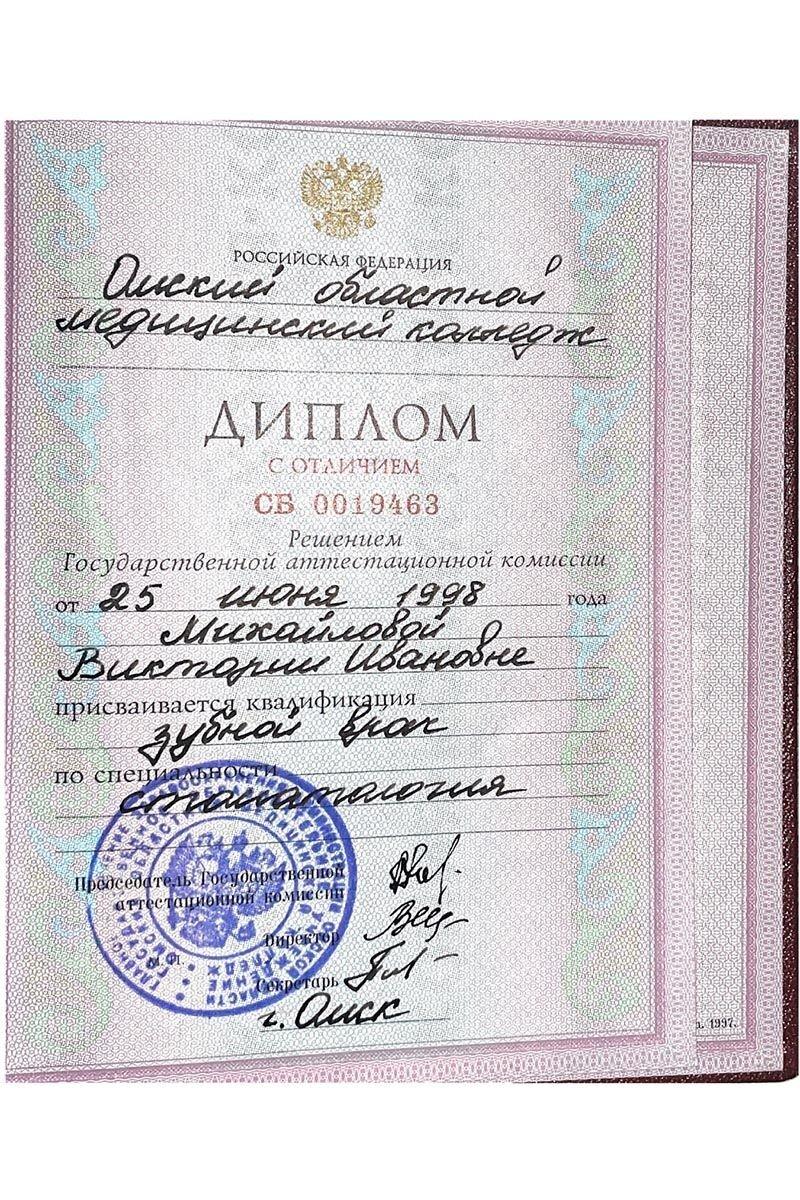 РОССИЙСКАЯ ФЕДЕРАЦИЯ
Омский областной
медицинский колледж
ДИПЛОМ
С ОТЛИЧИЕМ
СБ 0019463
Решением
Государственной аттестационной комиссии
от 25 июня 1998 года
Михайловой
Виктории Ивановне
присваивается квалификация
зубной врач
по специальности
стоматология
Председатель Государственной
аттестационной комиссии
Директор
М.П.
Секретарь
г. Омск
1997.